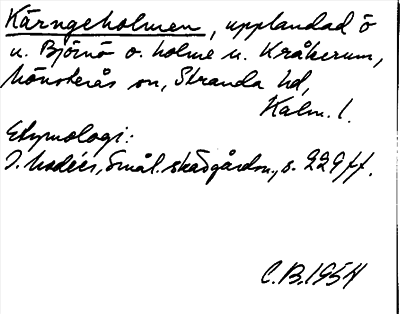 Kärngeholmen, upplandad ö
u. Björnö o. holme u. Kråkerum,
Mönsterås sn, Stranda hd,
Kalm. l.
Etymologi:
I. Modéer, Smål. skärgårdsn., s. 229 ff.
C.B. 1954